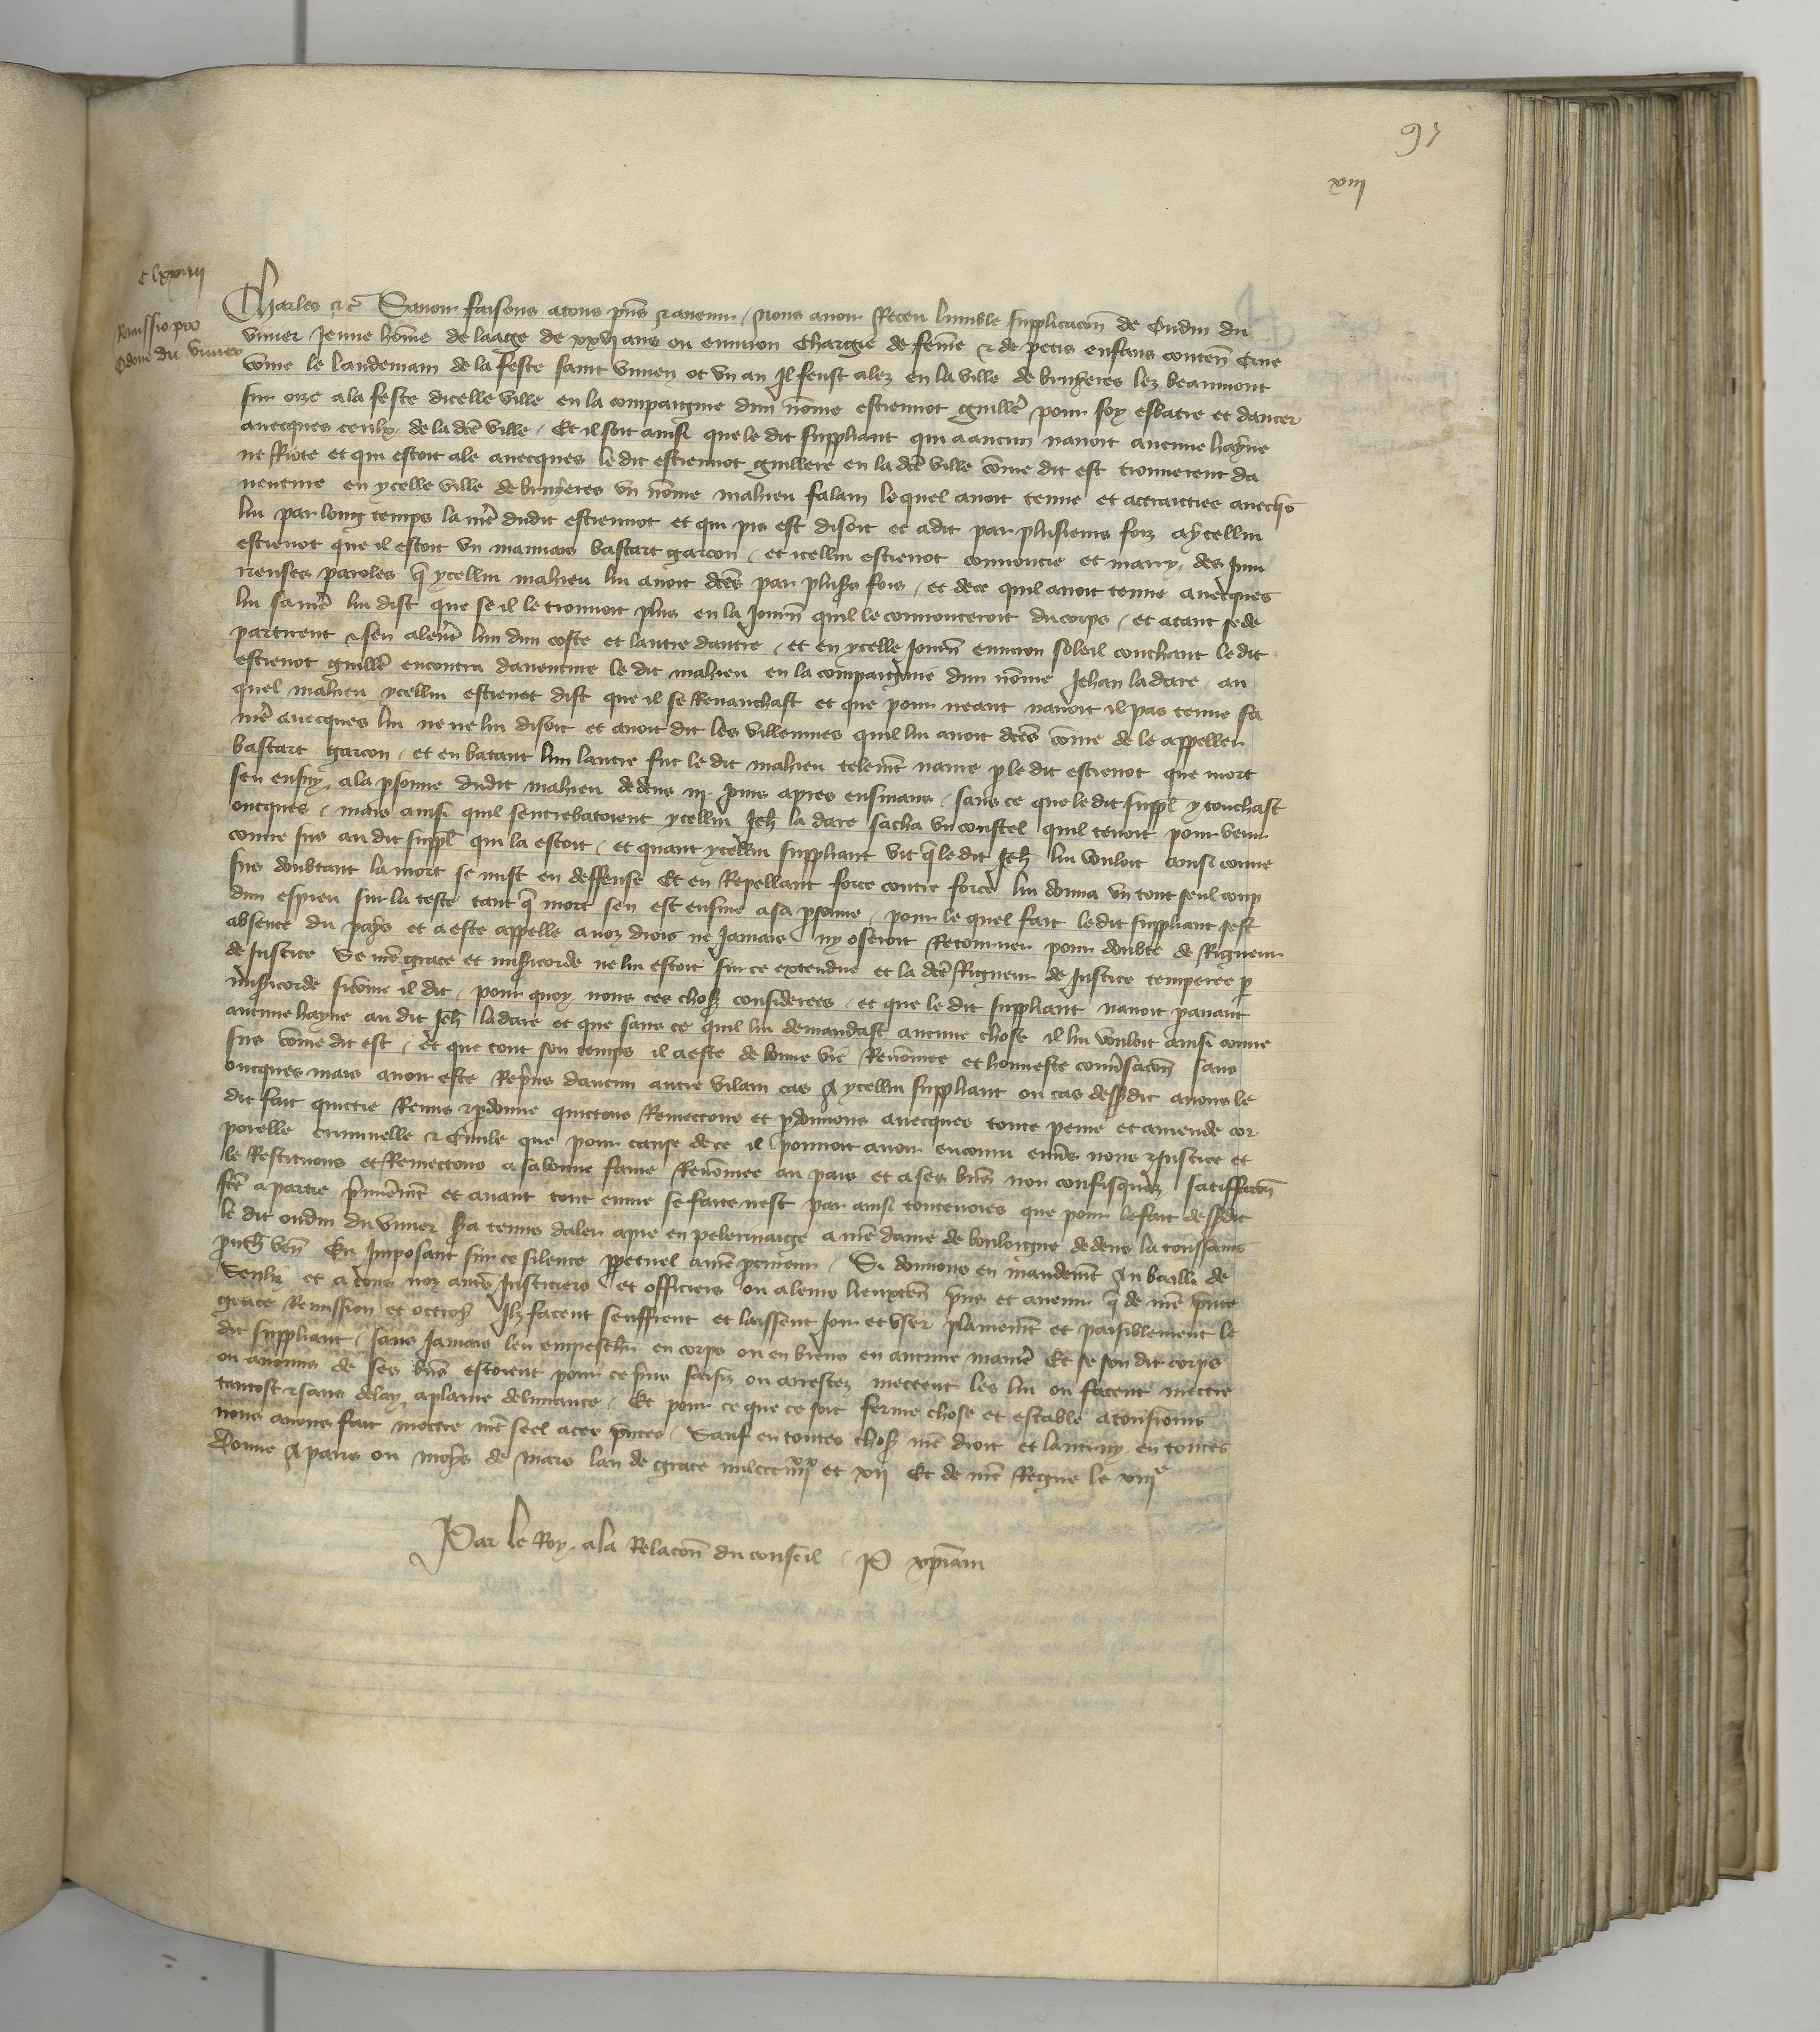 97
xiii
Clxxviii
Remissio pro
Odone du vivier
Charles etc Savoir faisons a tous pns et avenir / Nous avoir Receu lumble supplicacon de Oudin du
vivier Jeune home de laage de xxvj ans ou environ Chargie de feme et de petis enfans conten Que
come le landemain de la feste saint vivien ot un an Il feust alez en la ville de bruyeres lez beaumont
sur oize a la feste dicelle ville en la compaignie dun nome estiennot guille pour soy esbatre et dancer
avecques ceulx de la dce ville / Et il soit ainsi que le dit suppliant qui a aucun navoit aucune hayne
ne Riote et qui estoit ale avecques le dit estiennot guillere en la dce ville come dit est trouverent da
venture en ycelle ville de bruyeres un nome mahieu falain lequel avoit tenue et attraictiee avechs
lui par long temps la me dudit estiennot et qui pis est disoit et a dit par plusieurs foiz a ycellui
estienot que il estoit un mauvais bastart garcon / et icellui estienot courroucie et marry des Inju
rieuses paroles q ycellui mahieu lui avoit dces par plusrs fois / et de ce quil avoit tenue avecques
lui sa me lui dist que se il le trouvoit plus en la Journ quil le courrouceroit du corps / et atant se de
partirent et sen aleret lun dun coste et lautre dautre / et en ycelle Journ environ soleil couchant le dit
estienot guille encontra daventure le dit mahieu en la compaignie dun nome Jehan ladare / au
quel mahieu ycellui estienot dist que il se Revanchast et que pour neant navoit il pas tenue sa
me avecques lui ne ne lui disoit et avoit dit les villennies quil lui avoit dces come de le appeller
bastart garcon / et en batant lun lautre fut le dit mahieu telemt navre p le dit estienot que mort
sen ensuy a la psonne dudit mahieu dedens iij jours apres ensuians / sans ce que le dit suppl y touchast
oncques / mais ainsi quil sentrebatoient ycellui Jeh la dare sacha un coustel quil tenoit pour venir
courre sus au dit suppl qui la estoit / et quant ycellui suppliant vit q le dit Jeh lui vouloit ainsi courre
sus doubtant la mort se mist en deffense Et en Repellant force contre force lui donna un tout seul coup
dun espieu sur la teste tant q mort sen est ensuie a sa psonne / pour le quel fait le dit suppliant sest
absente du pays et a este appelle a noz drois ne Jamais ny oseroit Retourner pour doubte de Rigueur
de Justice Se nre grace et misicorde ne lui estoit sur ce extendue et la dce Rigueur de Justice temperee p
misicorde sicome il dit / pour quoy nous ces choses considerees / et que le dit suppliant navoit pavant
aucune hayne au dit Jeh ladare et que sans ce quil lui demandast aucune chose il lui vouloit ainsi courre
sus come dit est / et que tout son temps il a este de bonne vie Renomee et honneste conversacon sans
oncques mais avoir este Repris daucun autre vilain cas A ycellui suppliant ou cas dessusdit avons le
dit fait quictie Remis et pdonne quictons Remectons et pdonnons avecques toute peine et amende cor
porelle criminelle et Civile que pour cause de ce il pourroit avoir encouru envs nous et Justice et
le Restituons et Remectons a sa bonne fame Renomee au pais et a ses bns non confisquez satiffacon
fce a partie premieremt et avant tout euvre se faite nest par ainsi toutevoies que pour le fait dessusdit
le dit oudin du vivier sera tenus daler a pie en pelerinaige a nre dame de bouloigne dedens la toussains
prouch ven En Imposant sur ce silence ppetuel a nre pcureur / Si donnons en mandemt Au bailli de
Senliz et a tous noz autrs Justiciers et officiers ou a leurs lieuxten pns et avenir q de nre pnte
grace Remission et octroy Ilz facent seuffrent et laissent Joir et user plainemt et paisiblement le
dit suppliant / sans Jamais len empescher en corps ou en biens en aucune manie Et se son dit corps
ou aucuns de ses bns estoient pour ce pris saisiz ou arrestez mectent les lui ou facent mectre
tantost et sans delay a plaine delivrance / Et pour ce que ce soit ferme chose et estable a tousiours
nous avons fait mectre nre seel a ces pntes / Sauf en toutes choses nre droit et lautruy en toutes
Donne A paris ou moys de mars lan de grace mil ccc iiijxx et xij Et de nre Regne le xiije
Par le Roy a la Relacon du conseil / P xpian